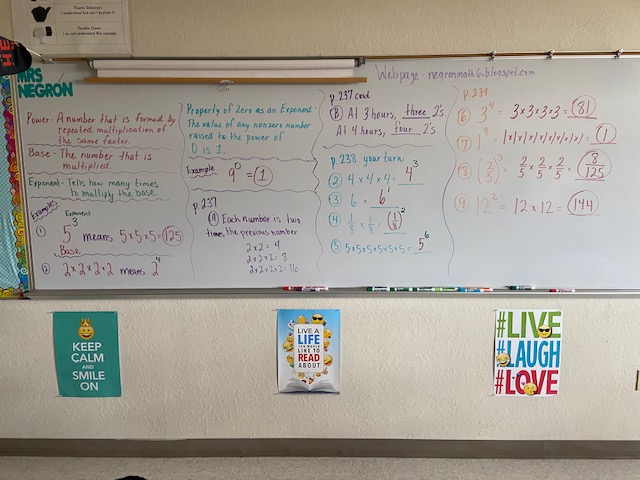 Thumb Sideways
I understand but can't explain it.
Thumbs Down
I do not understand this concept.
MRS
NEGRON
Webpage - negronmath6.blogspot.com
Power - A number that is formed by
repeated multiplication of
the same factor.
Base - The number that is
multiplied.
Exponent - Tells how many times
to multiply the base
Examples
Exponent
① 5³ means 5x5x5=125
Base
② 2x2x2x2 means 2⁴
Property of Zero as an Exponent-
The value of any nonzero number
raised to the power of
0 is 1.
Example
9⁰ = 1
p. 237
Ⓐ Each number is two
times the previous number
2x2 = 4
2x2x2 = 8
2x2x2x2 = 16
p. 237 cont
Ⓑ At 3 hours, three 2's
At 4 hours, four 2's
p. 238 your turn
② 4 x 4 x 4 = 4³
③ 6 = 6¹
④ 1/8 x 1/8 = (1/8)²
⑤ 5x5x5x5x5x5 = 5⁶
p. 239
⑥ 3⁴ = 3x3x3x3 = 81
⑦ 1⁹ = 1x1x1x1x1x1x1x1x1 = 1
⑧ (2/5)³ = 2/5 x 2/5 x 2/5 = 8/125
⑨ 12² = 12 x 12 = 144
KEEP
CALM
AND
SMILE
ON
LIVE A
LIFE
YOU WOULD
LIKE TO
READ
ABOUT
#LIVE
#LAUGH
#LOVE